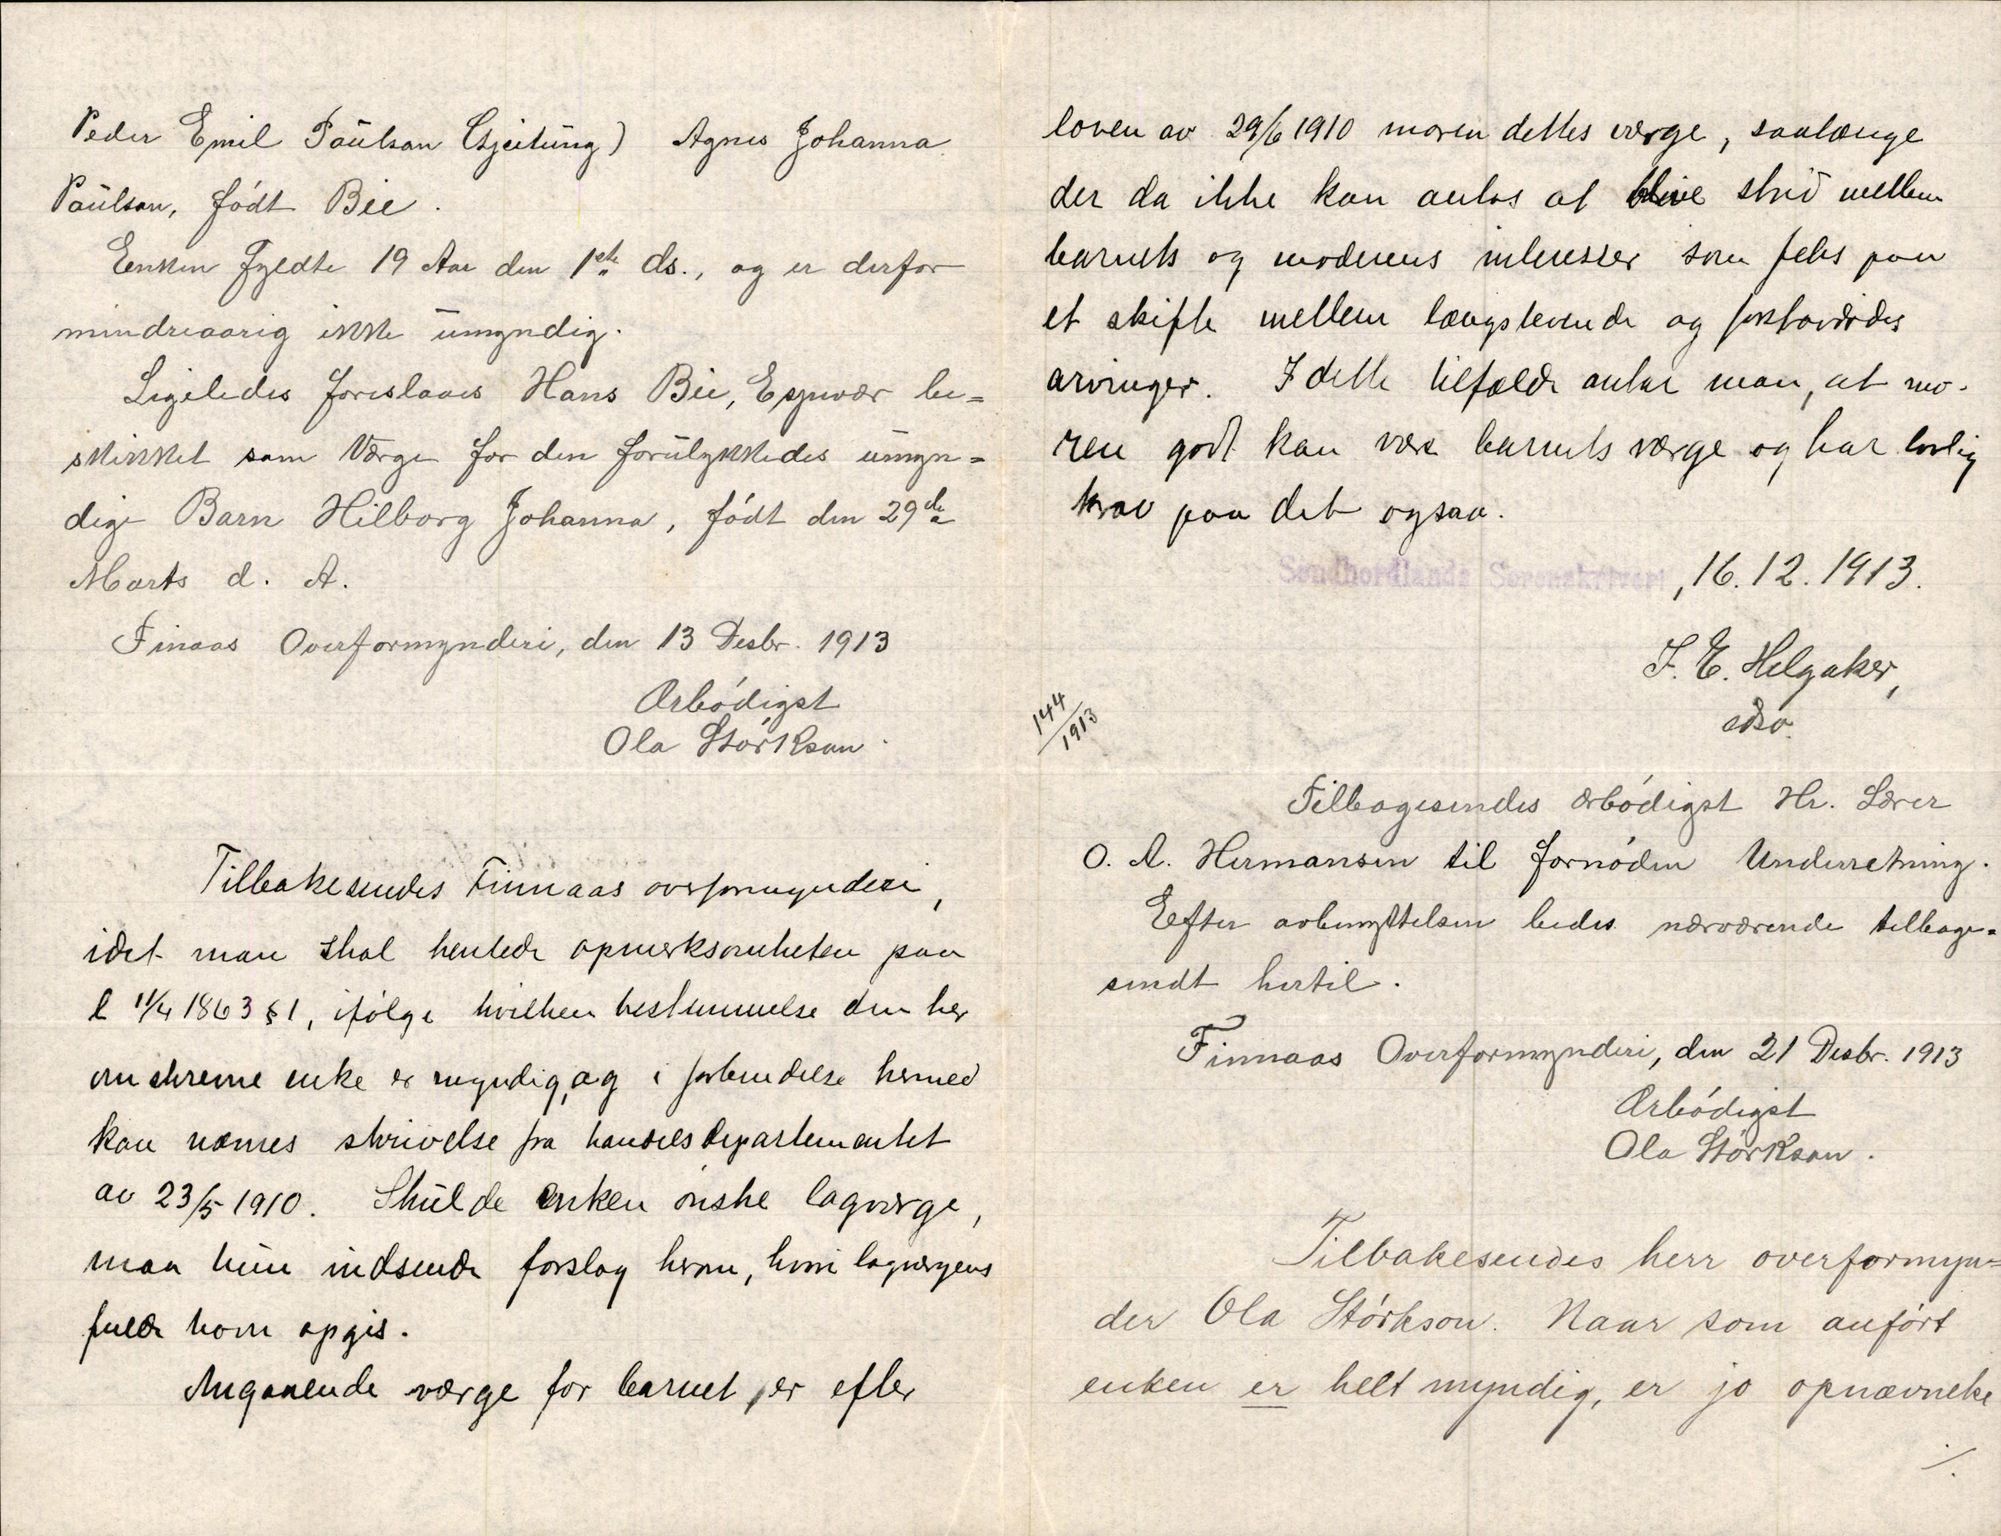 Peder Emil Paulson (Gjeitung) Agnes Johanna
Paulson, født Bie.
Enken fyldte 19 Aar den 1ste ds., og er derfor
mindreaarig ikke umyndig.
Ligeledes foreslaaes Hans Bie, Espevær be=
skikket som Værge for den forulykkedes umyn=
dige Barn Hilborg Johanna, født den 29de
Marts d. A.
Finaas Overformynderi, den 13 Desbr. 1913
Ærbødigst
Ola Størkson.
Tilbakesendes Finnaas overformynderi,
idet man skal henlede opmerksomheten paa
l 11/4 1863 § 1, ifølge hvilken bestemmelse den her
omskrevne enke er myndig, og i forbindelse hermed
kan nævnes skrivelse fra handelsdepartementet
av 23/5 1910. Skulde enken ønske lagværge,
maa hun indsende forslag herom, hvori lagvergens
fulde navn opgis.
Angaaende værge for barnet, er efter
loven av 29/6 1910 moren dettes værge, saalænge
der da ikke kan antas at blive strid mellem
barnets og moderens interesser som f.eks paa
et skifte mellem længstlevende og
arvinger. I dette tilfælde antar man, at mo-
ren godt kan være barnets værge og har lovlig
krav paa det ogsaa.
Søndhordlands Sorenskriveri, 16.12.1913.
J. E. Helgaker,
edsv.
144/1913
Tilbagesendes ærbødigst Hr. Lærer
O. A. Hermansen til fornøden Underretning.
Efter avbenyttelsen bedes nærværende tilbage=
sendt hertil.
Finnaas Overformynderi, den 21 Desbr. 1913
Ærbødigst
Ola Størkson.
Tilbakesendes herr overformyn=
der Ola Størkson. Naar som anført
enken er helt myndig, er jo opnævnelse
./.